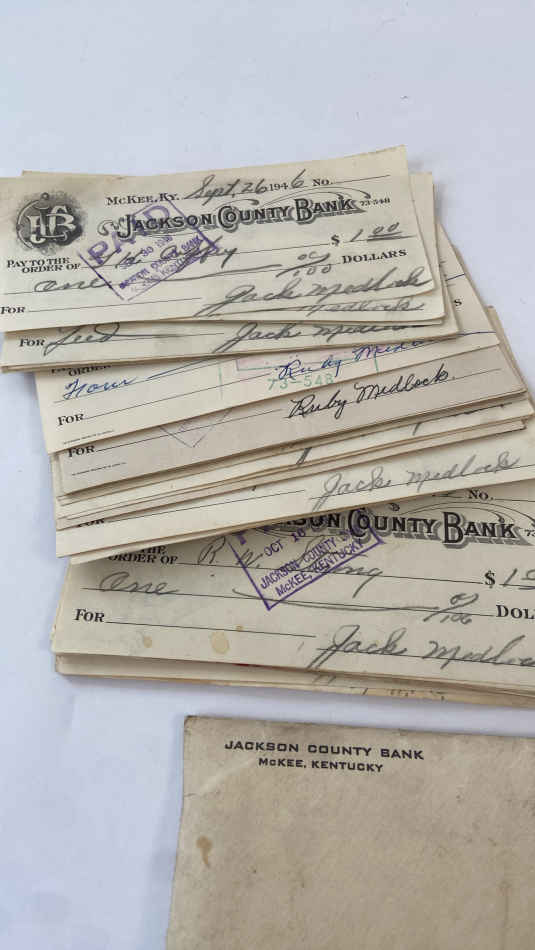 McKEE, KY. Sept. 26 1946 No.
JCB
JACKSON COUNTY BANK 73-548
PAID
SEP 30 1946
JACKSON COUNTY BANK
McKEE, KENTUCKY
PAY TO THE
ORDER OF $ 1.00
One 00/100 DOLLARS
FOR Jack Medlock
Medlock
FOR Feed Jack Medlock
ORDER OF
Four Ruby
73-548
FOR
Ruby Medlock.
FOR
Jack Medlock
FOR
No.
COUNTY BANK
OCT 16
JACKSON COUNTY
McKEE, KENTUCKY
THE
ORDER OF R. $ 1
One 00/100 DOL
FOR Jack Medlock
JACKSON COUNTY BANK
McKEE, KENTUCKY